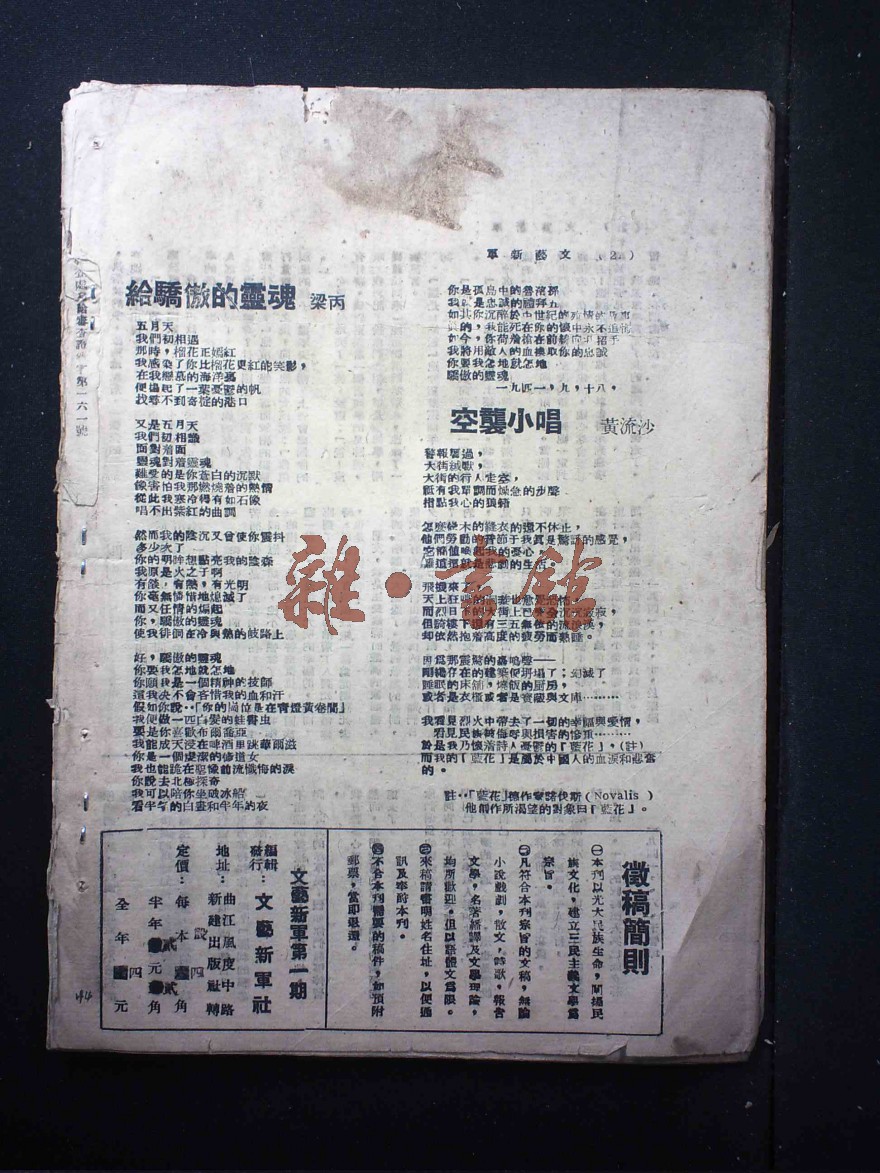 (2 ) 文藝新軍
給驕傲的靈魂 梁丙
五月天
我們初相遇
那時，榴花正嫣紅
我感染了你比榴花更紅的笑影，
在我戀慕的海洋裏
便揚起了一葉憂鬱的帆
找尋不到寄碇的港口
又是五月天
我們初相識
面對着面
靈魂對着靈魂
難受的是你蒼白的沉默
像害怕我那燃燒着的熱情
從此我寒冷得有如石像
唱不出紫紅的曲調
然而我的陰沉又曾使你震抖
多少次了
你的明眸想點亮我的陰森
我原是火之子啊
有燄，有熱，有光明
你毫無憐惜地熄滅了
而又任情的煽起
你，驕傲的靈魂
使我徘徊在冷與熱的歧路上
好，驕傲的靈魂
你要我怎地就怎地
你願我是一個精神的技師
這我決不會吝惜我的血和汗
假如你說：「你的崗位是在青燈黃卷間」
我便做一匹白髮的蛀書蟲
要是你喜歡布爾喬亞
我能成天浸在啤酒里跳華爾滋
你是一個虔潔的修道女
我也能跪在聖像前流懺悔的淚
你說去北極探奇
我可以陪你坐破冰船
看半年的白晝和半年的夜
你是孤島中的魯濱孫
我 是忠誠的禮拜五
如其你沉醉於中世紀的 情的故事
真的，我能死在你的懷中永不追悔
如今，你荷着槍在前線向我招手
我將用敵人的血換取你的忠誠
你要我怎地就怎地
驕傲的靈魂
一九四一，九，十八，
空襲小唱 黃流沙
警報響過，
大街緘默，
大街的行人走空，
祗有我單調而燥急的步聲
怎麼候木的縫衣的還不休止，
他們勞動的音節于我真是驚訝的感覺，
難道這就是悲劇的生活。
飛機來了，
而烈日下的大街上巴登分沉 寂寂，
但騎樓下還有三五無依的流浪漢，
却依然抱着高度的疲勞而熟睡。
因爲那震驚的轟鳴聲——
剛纔存在的建築便坍塌了；幻滅了
睡眠的床舖，燒飯的厨房，
或者是衣櫃或者是寶藏與文庫………
我看見烈火中帶去了一切的幸福與愛情，
看見民族被侮辱與損害的慘重………
於是我乃懷渚詩人憂鬱的「藍花」，（註）
而我的「藍花」是屬於中國人的血淚和悲奮
的。
註：「藍花」德作家諾伐斯（Novalis）
他創作所渴望的對象曰「藍花」。
徵稿簡則
㊀本刊以光大民族生命，闡揚民
族文化，建立三民主義文學爲
宗旨。
㊁凡符合本刊宗旨的文稿，無論
小說戲劇，散文，詩歌，報告
文學，名著翻譯及文學理論，
均所歡迎。但以語體文爲限。
㊂來稿請書明姓名住址，以便通
訊及奉酧本刊。
㊃不合本刊需要的稿件，如預附
郵票，當即退還。
文藝新軍第一期
編輯
發行：文藝新軍社
地址：曲江風度中路
新建出版社轉
定價：每本 四角
半年 貳元 貳角
全年 四元
第一六一號
雜·書館